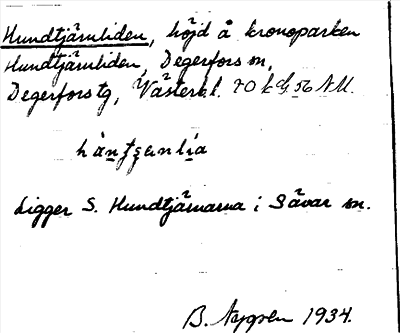 Hundtjärnliden, höjd å kronoparken
Hundtjärnliden, Degerfors sn,
Degerfors tg, Västerb. l. 70 k G 56 N.M.
hȧṇtʂạnlia
Ligger S. Hundtjärnarna i Sävar sn.
B. Nygren 1934.